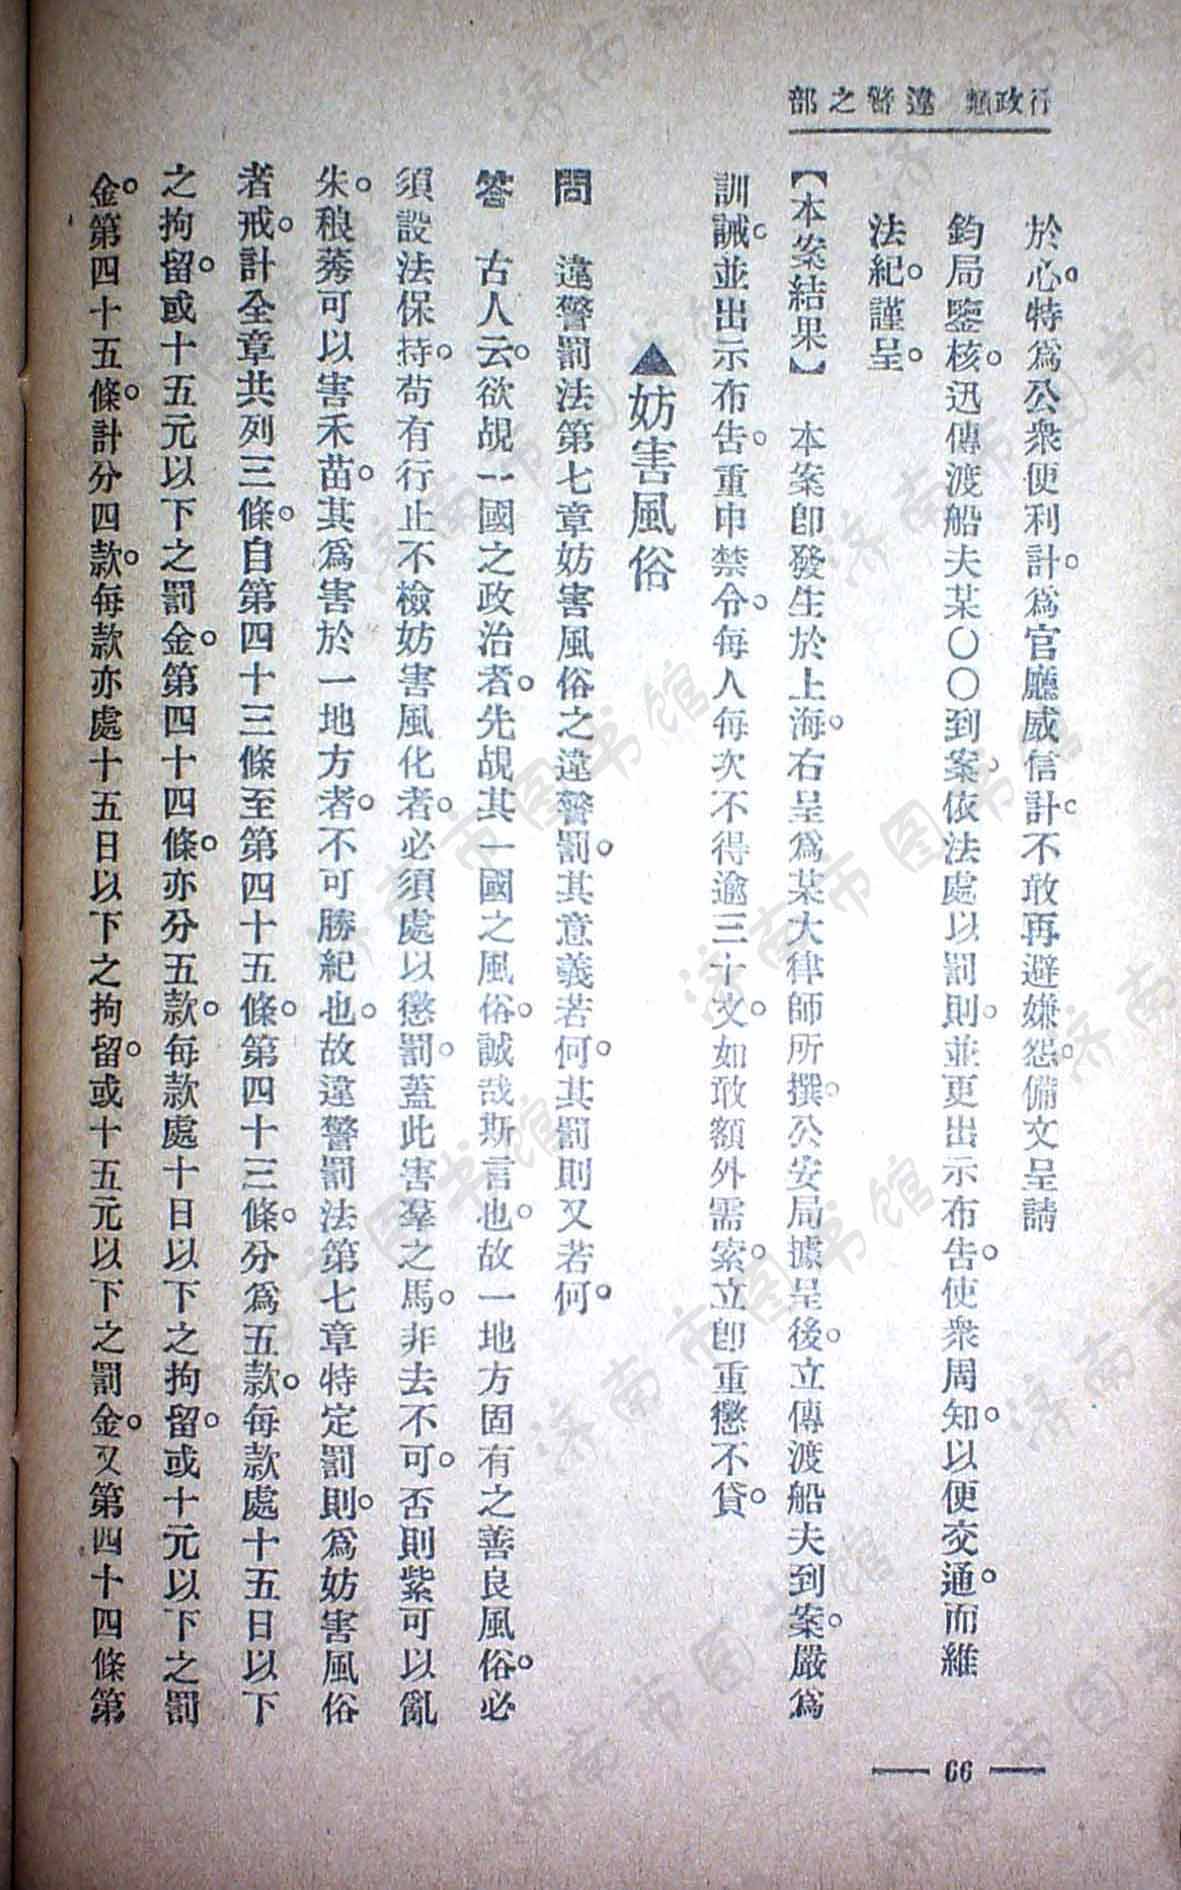 行政類 違警之部
於心。特爲公衆便利計。爲官廳威信計。不敢再避嫌怨。備文呈請
鈞局鑒核。迅傳渡船夫某〇〇到案。依法處以罰則。並更出示布告。使衆周知。以便交通。而維
法紀。謹呈。
【本案結果】 本案卽發生於上海。右呈爲某大律師所撰。公安局據呈後。立傳渡船夫到案。嚴爲
訓誡。並出示布告。重申禁令。每人每次不得逾三十文。如敢額外需索。立卽重懲不貸。
▲妨害風俗
問 違警罰法第七章妨害風俗之違警罰。其意義若何。其罰則又若何。
答 古人云。欲覘一國之政治者。先覘其一國之風俗。誠哉斯言也。故一地方固有之善良風俗。必
須設法保持。苟有行止不檢妨害風化者。必須處以懲罰。蓋此害羣之馬。非去不可。否則紫可以亂
朱。稂莠可以害禾苗。其爲害於一地方者。不可勝紀也。故違警罰法第七章特定罰則。爲妨害風俗
者戒。計全章共列三條。自第四十三條至第四十五條。第四十三條。分爲五款。每款處十五日以下
之拘留。或十五元以下之罰金。第四十四條。亦分五款。每款處十日以下之拘留。或十元以下之罰
金。第四十五條。計分四款。每款亦處十五日以下之拘留。或十五元以下之罰金。又第四十四條第
— 66 —
济南市图书馆